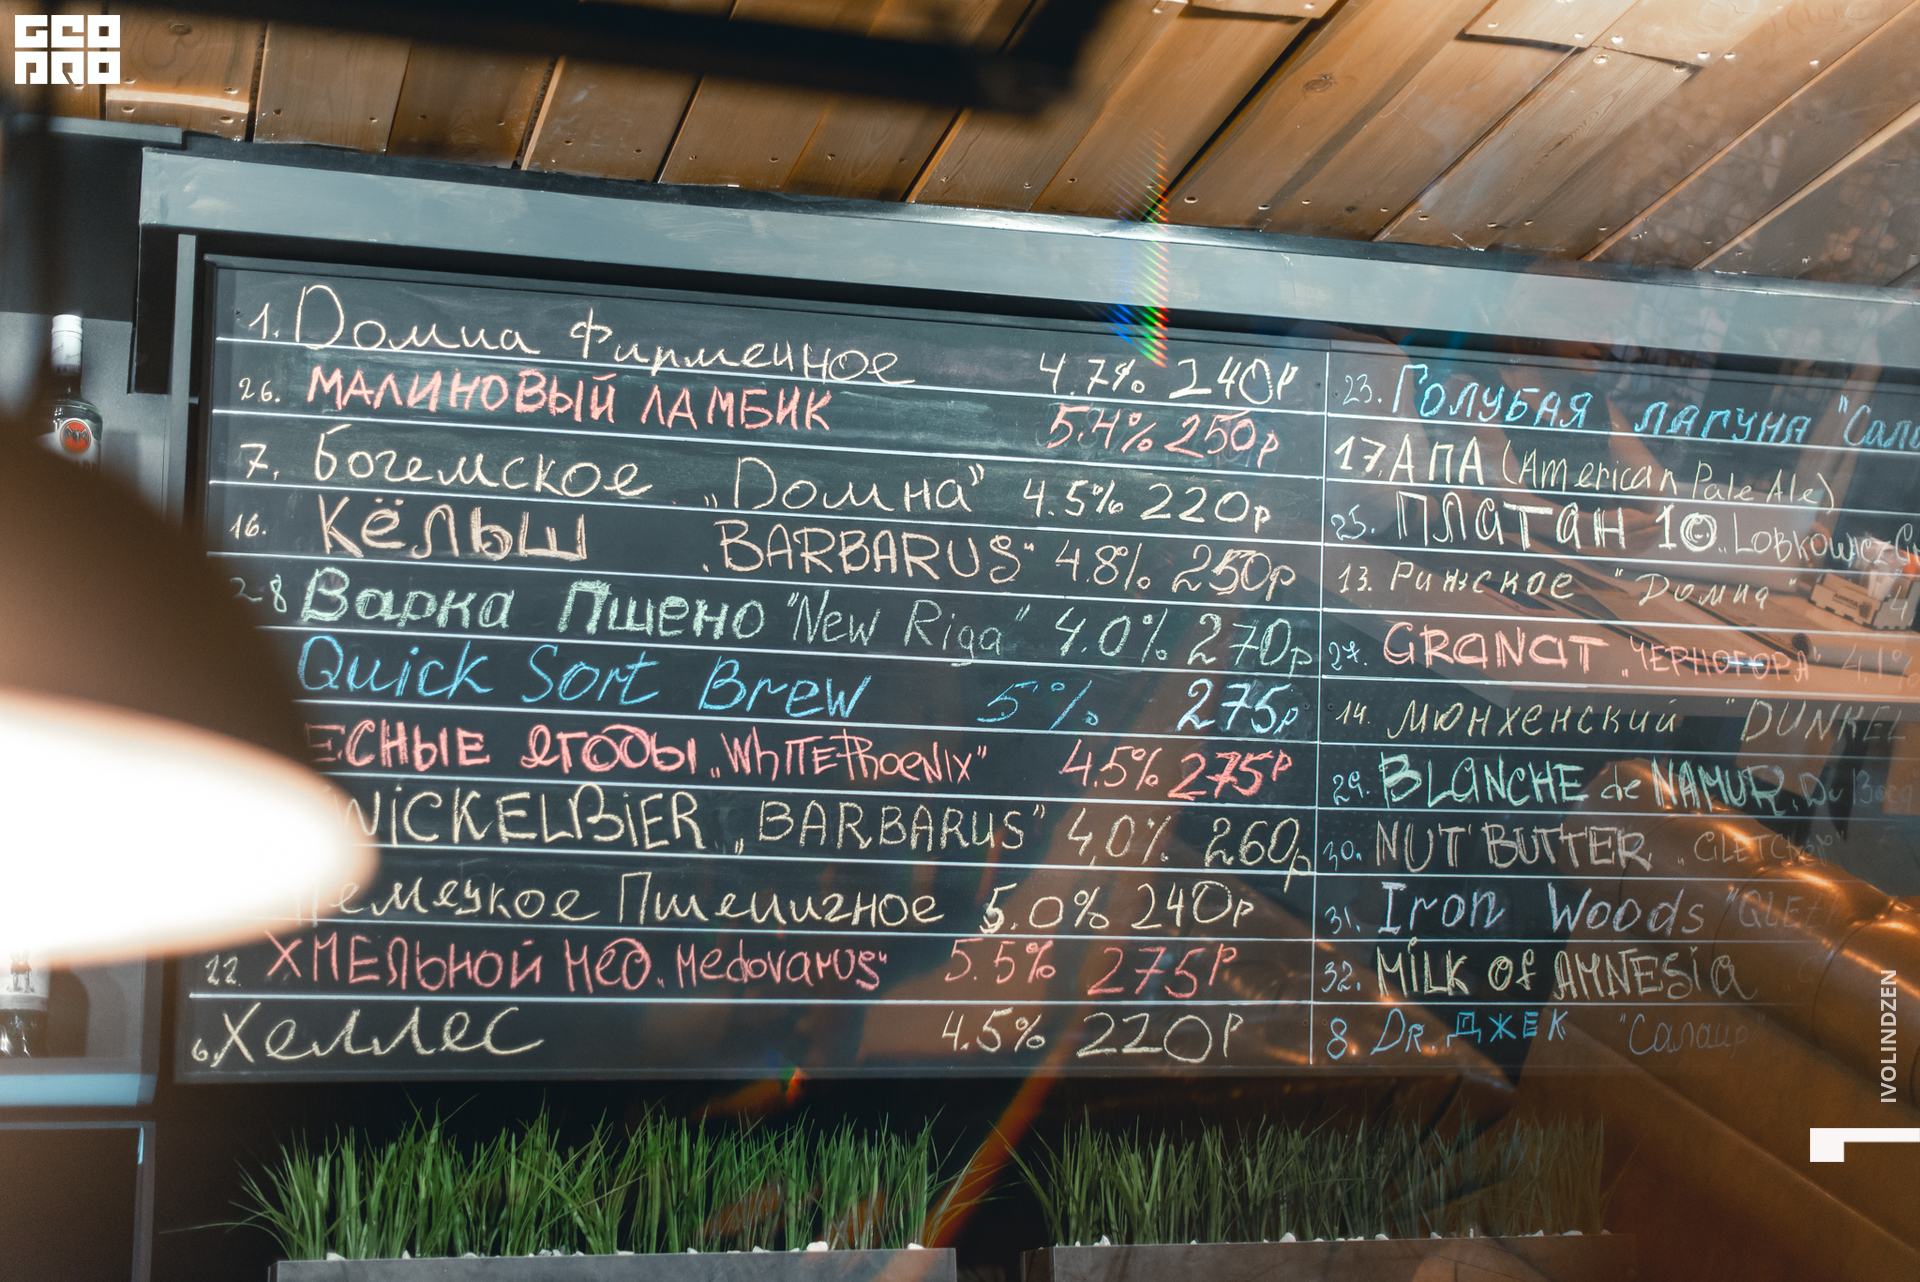 GEO
PRO
1. Домна Фирменное 4.7% 240р
26. МАЛИНОВЫЙ ЛАМБИК 5.4% 250р
7. Богемское „Домна" 4.5% 220р
16. Кёльш „BARBARUS" 4.8% 250р
28 Варка Пшено "New Riga" 4.0% 270р
Quick Sort Brew 5% 275р
ЕСНЫЕ ЯГОДЫ „WhITE PhoeNIX" 4.5% 275р
WiCKELBiER „BARBARUS" 4,0% 260р
Немецкое Пшеничное 5.0% 240р
22. ХМЕЛЬНОЙ МЁД. Medovarus" 5.5% 275р
6. Хеллес 4.5% 220р
23. Голубая лагуна "Сала
17. АПА (American Pale Ale)
25. ПЛАТАН 10 „Lobkowicz
13. Рижское "Домна" 4
27. GRANAT „ЧЕРНОГОРА" 4.1%
14. Мюнхенский "DUNKEL
29. BLANCHE de NAMUR, Du Boc
30. NUT BUTTER
31. Iron Woods
32. MiLK of AMNESia
8. DR. ДЖЕК
IVOLINDZEN